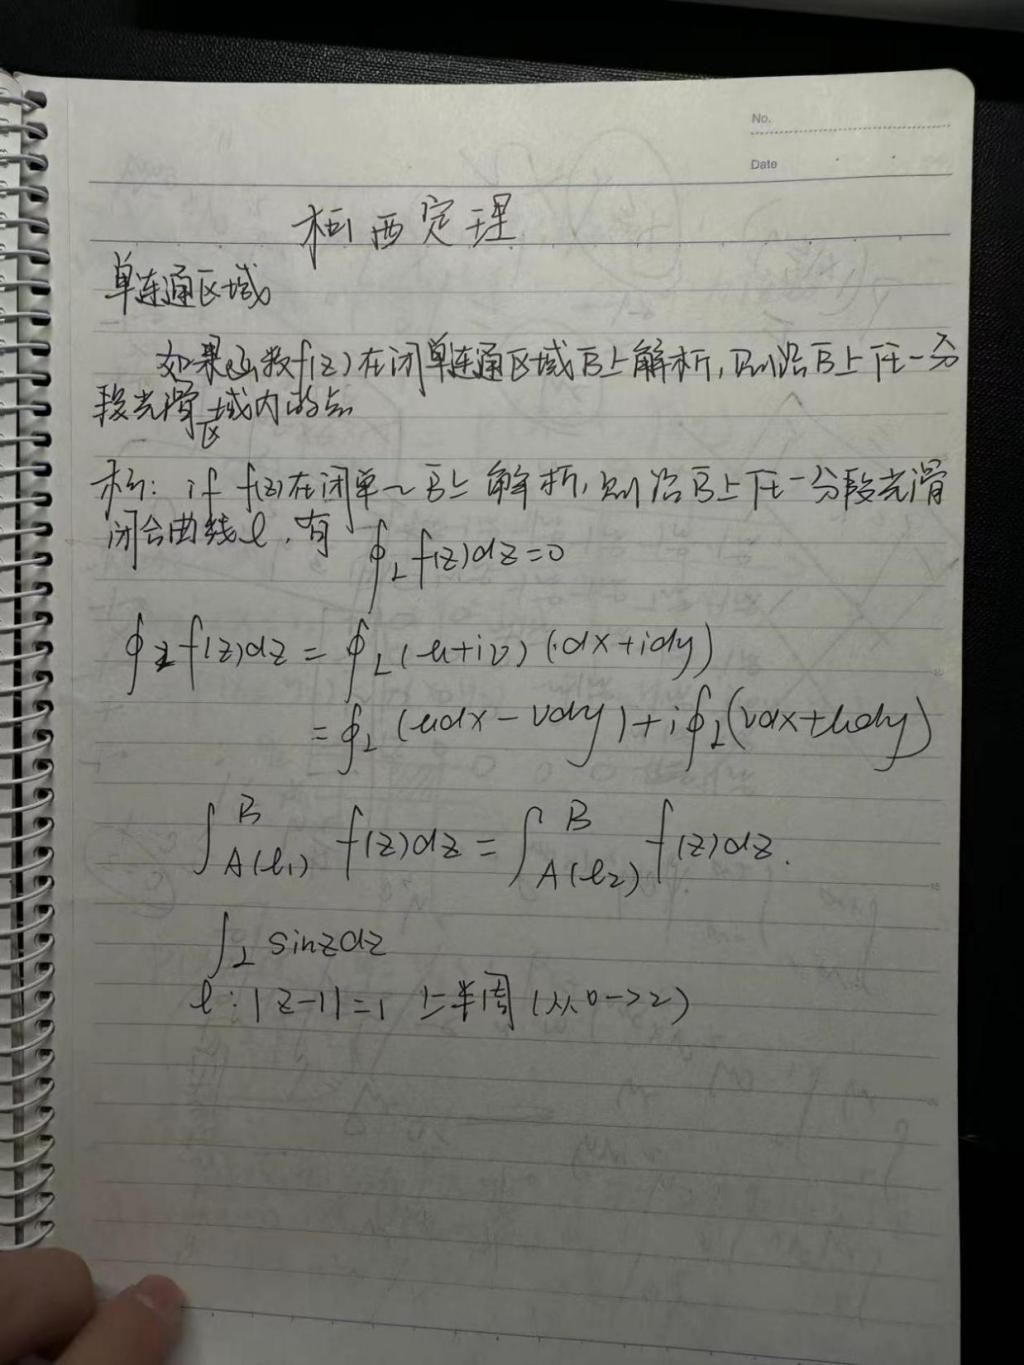 No.
Date
柯西定理
单连通区域
如果函数f(z)在闭单连通区域B̄上解析,则沿B̄上任一分
段光滑区域内的点
柯: if f(z)在闭单~B̄上解析,则沿B̄上任一分段光滑
闭合曲线l,有 ∮_L f(z)dz=0
∮_L f(z)dz = ∮_L (u+iv)(dx+idy)
=∮_L (udx-vdy)+i∮_L(vdx+udy)
∫_{A(l₁)}^{B} f(z)dz = ∫_{A(l₂)}^{B} f(z)dz.
∫_L sinzdz
l:|z-1|=1 上半周(从0->2)